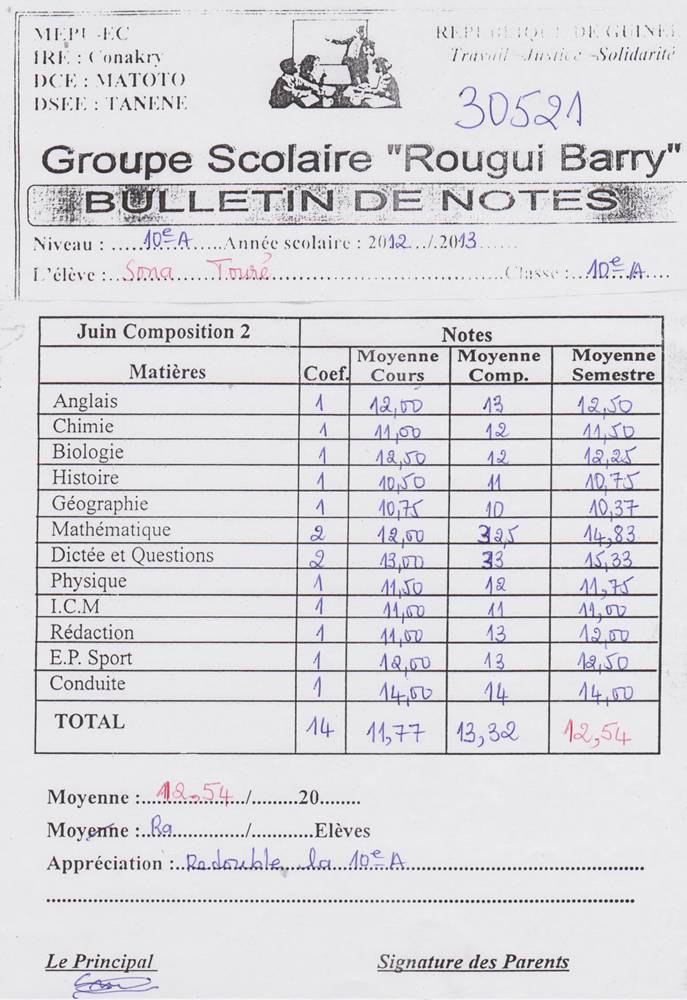 MEPU-EC
IRE : Conakry
DCE : MATOTO
DSEE : TANENE
REPUBLIQUE DE GUINEE
Travail -Justice -Solidarité
30521
Groupe Scolaire "Rougui Barry"
BULLETIN DE NOTES
Niveau : .....10e A.....Année scolaire : 2012../.2013......
L'élève :..Sona Touré...............................Classe :..10e A....
Juin Composition 2 Notes
Matières Coef. Moyenne Cours Moyenne Comp. Moyenne Semestre
Anglais 1 12,00 13 12,50
Chimie 1 11,00 12 11,50
Biologie 1 12,50 12 12,25
Histoire 1 10,50 11 10,75
Géographie 1 10,75 10 10,37
Mathématique 2 12,00 32,5 14,83
Dictée et Questions 2 13,00 33 15,33
Physique 1 11,50 12 11,75
I.C.M 1 11,00 11 11,00
Rédaction 1 11,00 13 12,00
E.P. Sport 1 12,00 13 12,50
Conduite 1 14,00 14 14,00
TOTAL 14 11,77 13,32 12,54
Moyenne :..12,54.../.........20........
Moyenne :..Rg................/............Elèves
Appréciation :..Redouble la 10e A.......................................
Le Principal
Signature des Parents